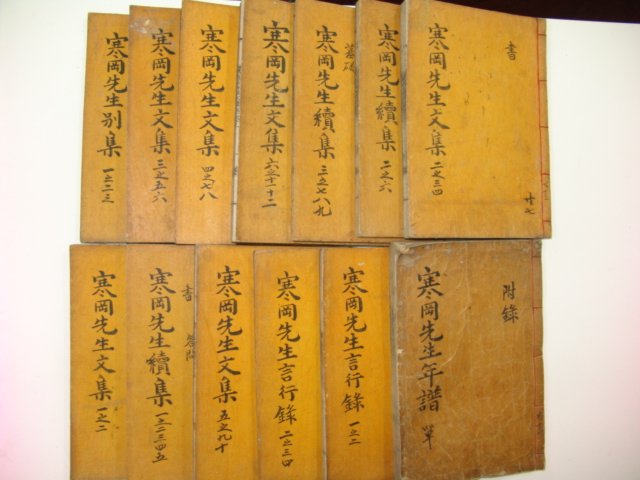 寒岡先生別集 一之二三
寒岡先生文集 三之五六
寒岡先生文集 四之七八
寒岡先生文集 六之十一十二
寒岡先生續集 三之七八九
寒岡先生續集 二之六
書
寒岡先生文集 二之三四
卄七
寒岡先生文集 一之二
書
寒岡先生續集 一之二三四五
寒岡先生文集 五之九十
寒岡先生言行錄 二之三四
寒岡先生言行錄 一之二
附錄
寒岡先生年譜 單